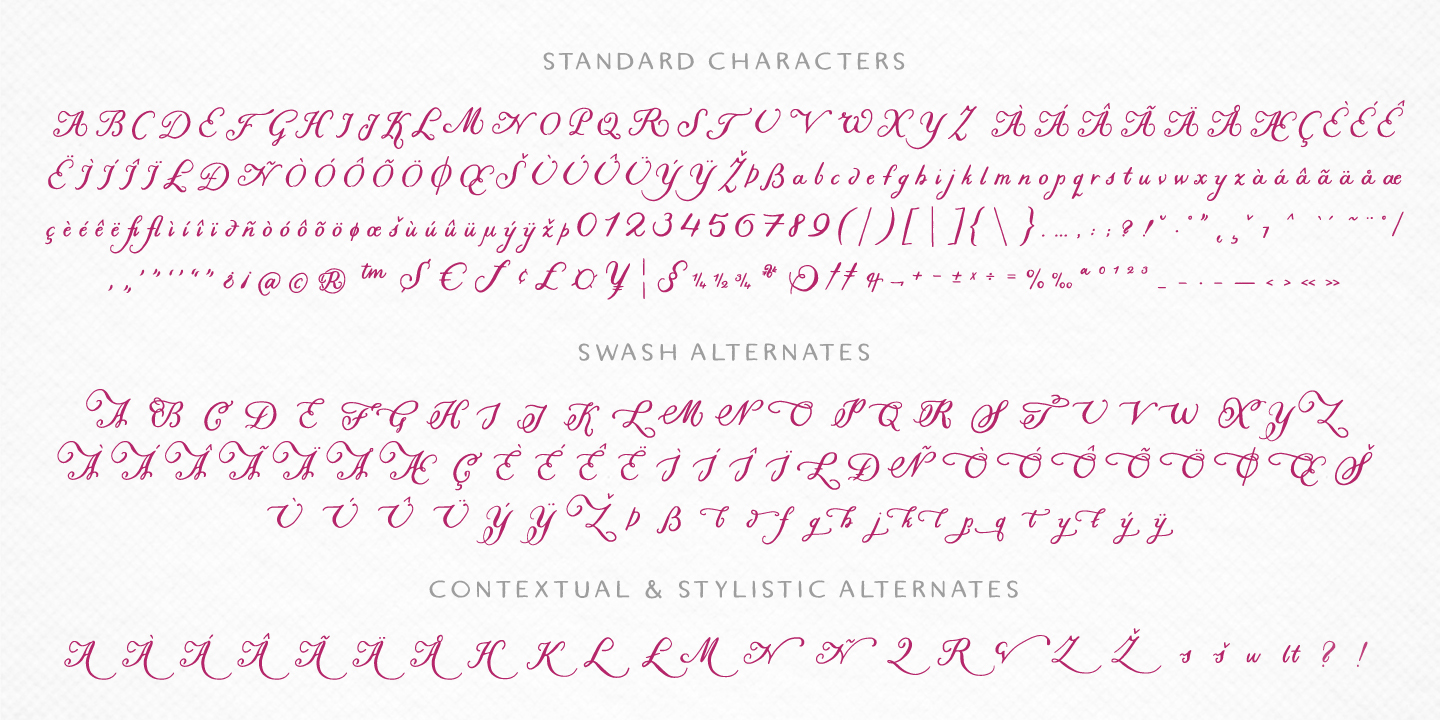 STANDARD CHARACTERS
A B C D E F G H I J K L M N O P Q R S T U V W X Y Z À Á Â Ã Ä Å Æ Ç È É Ê
Ë Ì Í Î Ï Ł Ð Ñ Ò Ó Ô Õ Ö Ø Œ Š Ù Ú Û Ü Ý Ÿ Ž Þ ß a b c d e f g h i j k l m n o p q r s t u v w x y z à á â ã ä å æ
ç è é ê ë fi fl ì í î ï ð ñ ò ó ô õ ö ø œ š ù ú û ü µ ý ÿ ž þ 0 1 2 3 4 5 6 7 8 9 ( / ) [ | ] { \ } . … , : ; ? !
‚ „ ' " ‘ ’ “ ” ¿ ¡ @ © ® ™ $ € ƒ ¢ £ ¤ ¥ ¦ § ¼ ½ ¾ † ‡ ¬ + − ± × ÷ = % ‰ ª º ¹ ² ³ _ - · – — ‹ › « »
SWASH ALTERNATES
A B C D E F G H I J K L M N O P Q R S T U V W X Y Z
À Á Â Ã Ä Å Æ Ç È É Ê Ë Ì Í Î Ï Ł Ð Ñ Ò Ó Ô Õ Ö Ø Œ Š
Ù Ú Û Ü Ý Ÿ Ž Þ ß b d f g h j k l p q t y ł ý ÿ
CONTEXTUAL & STYLISTIC ALTERNATES
A À Á Â Ã Ä Å H K L Ł M N Ñ Q R V Z Ž s š w tt ? !